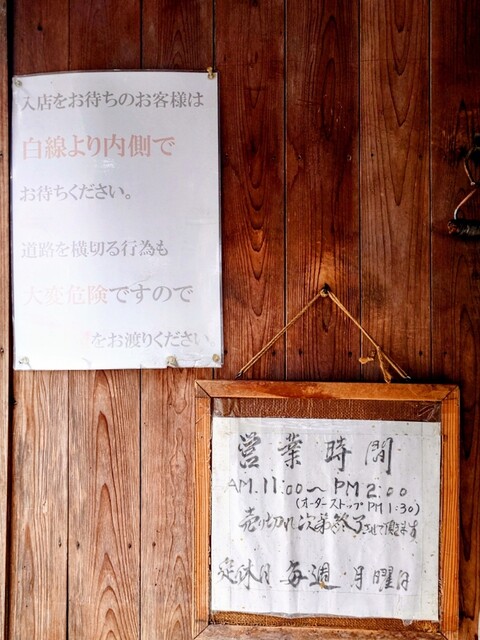 入店をお待ちのお客様は
白線より内側で
お待ちください。
道路を横切る行為も
大変危険ですので
をお渡りください
営業時間
AM.11:00〜PM2:00
(オーダーストップPM1:30)
売り切れ次第終了させて頂きます
定休日 毎週 月曜日